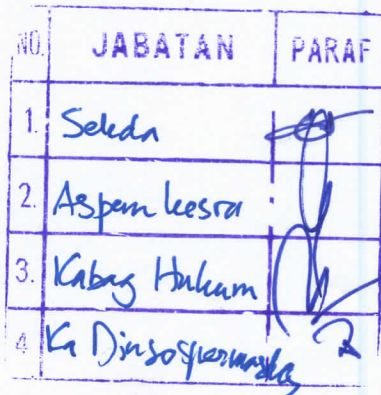 NO. JABATAN PARAF
1. Sekda
2. Aspem kesra
3. Kabag Hukum
4 Ka Dinsospermasdes